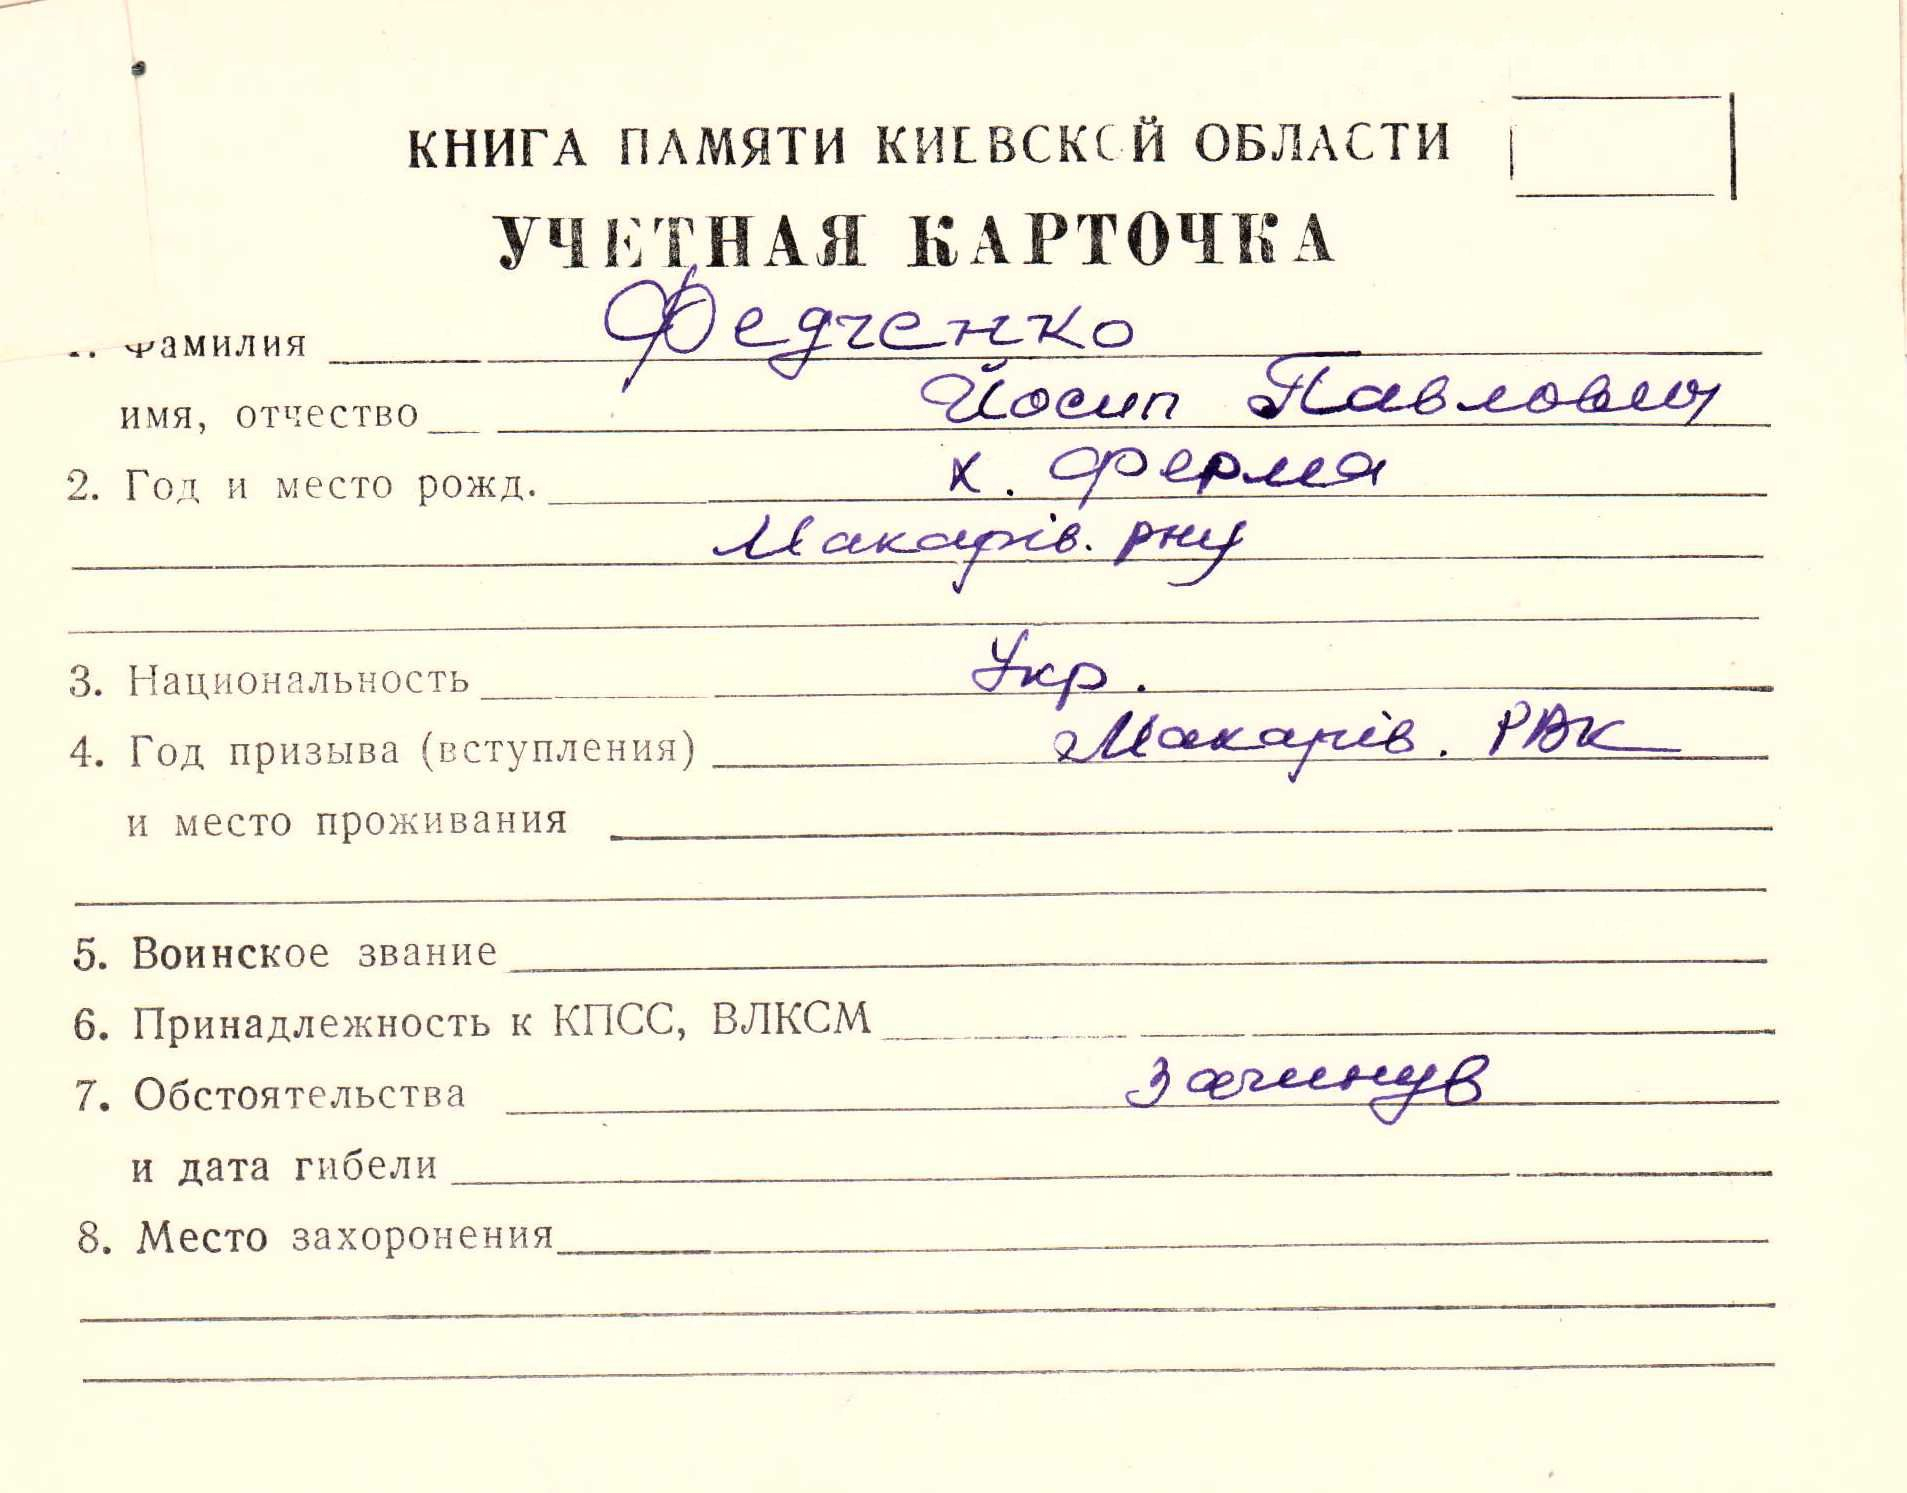 КНИГА ПАМЯТИ КИЕВСКОЙ ОБЛАСТИ
УЧЕТНАЯ КАРТОЧКА
1. Фамилия Федченко
имя, отчество Йосип Павлович
2. Год и место рожд. х. Ферма
Макарів. рну
3. Национальность Укр.
4. Год призыва (вступления) Макарів. РВК
и место проживания
5. Воинское звание
6. Принадлежность к КПСС, ВЛКСМ
7. Обстоятельства загинув
и дата гибели
8. Место захоронения